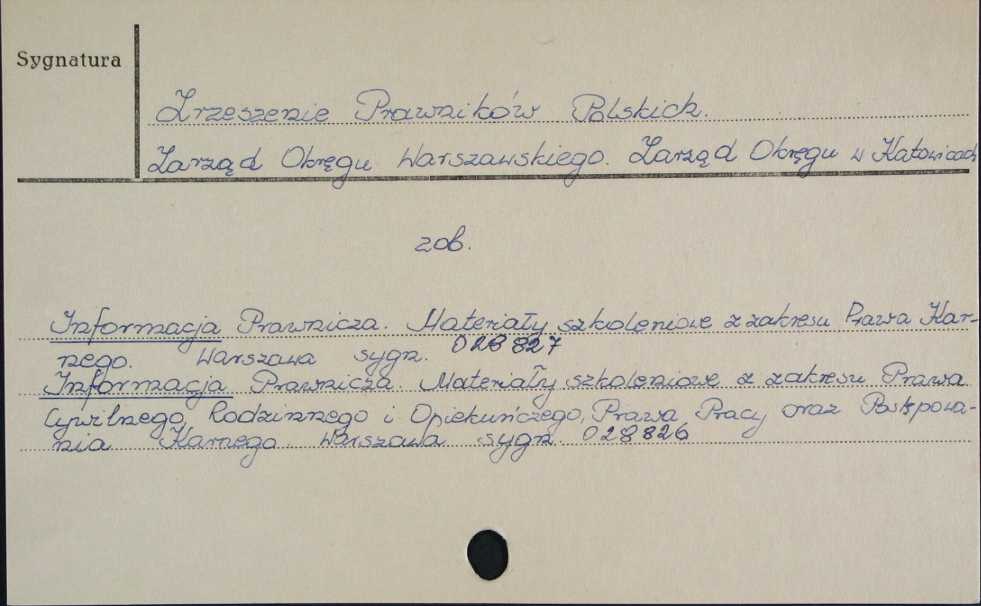 Sygnatura
Zrzeszenie Prawników Polskich.
Zarząd Okręgu Warszawskiego. Zarząd Okręgu w Katowicach
zob.
Informacja Prawnicza. Materiały szkoleniowe z zakresu Prawa Kar-
nego. Warszawa sygn. 028827
Informacja Prawnicza. Materiały szkoleniowe z zakresu Prawa
Cywilnego, Rodzinnego i Opiekuńczego, Prawa Pracy oraz Postępowa-
nia Karnego Warszawa sygn. 028826